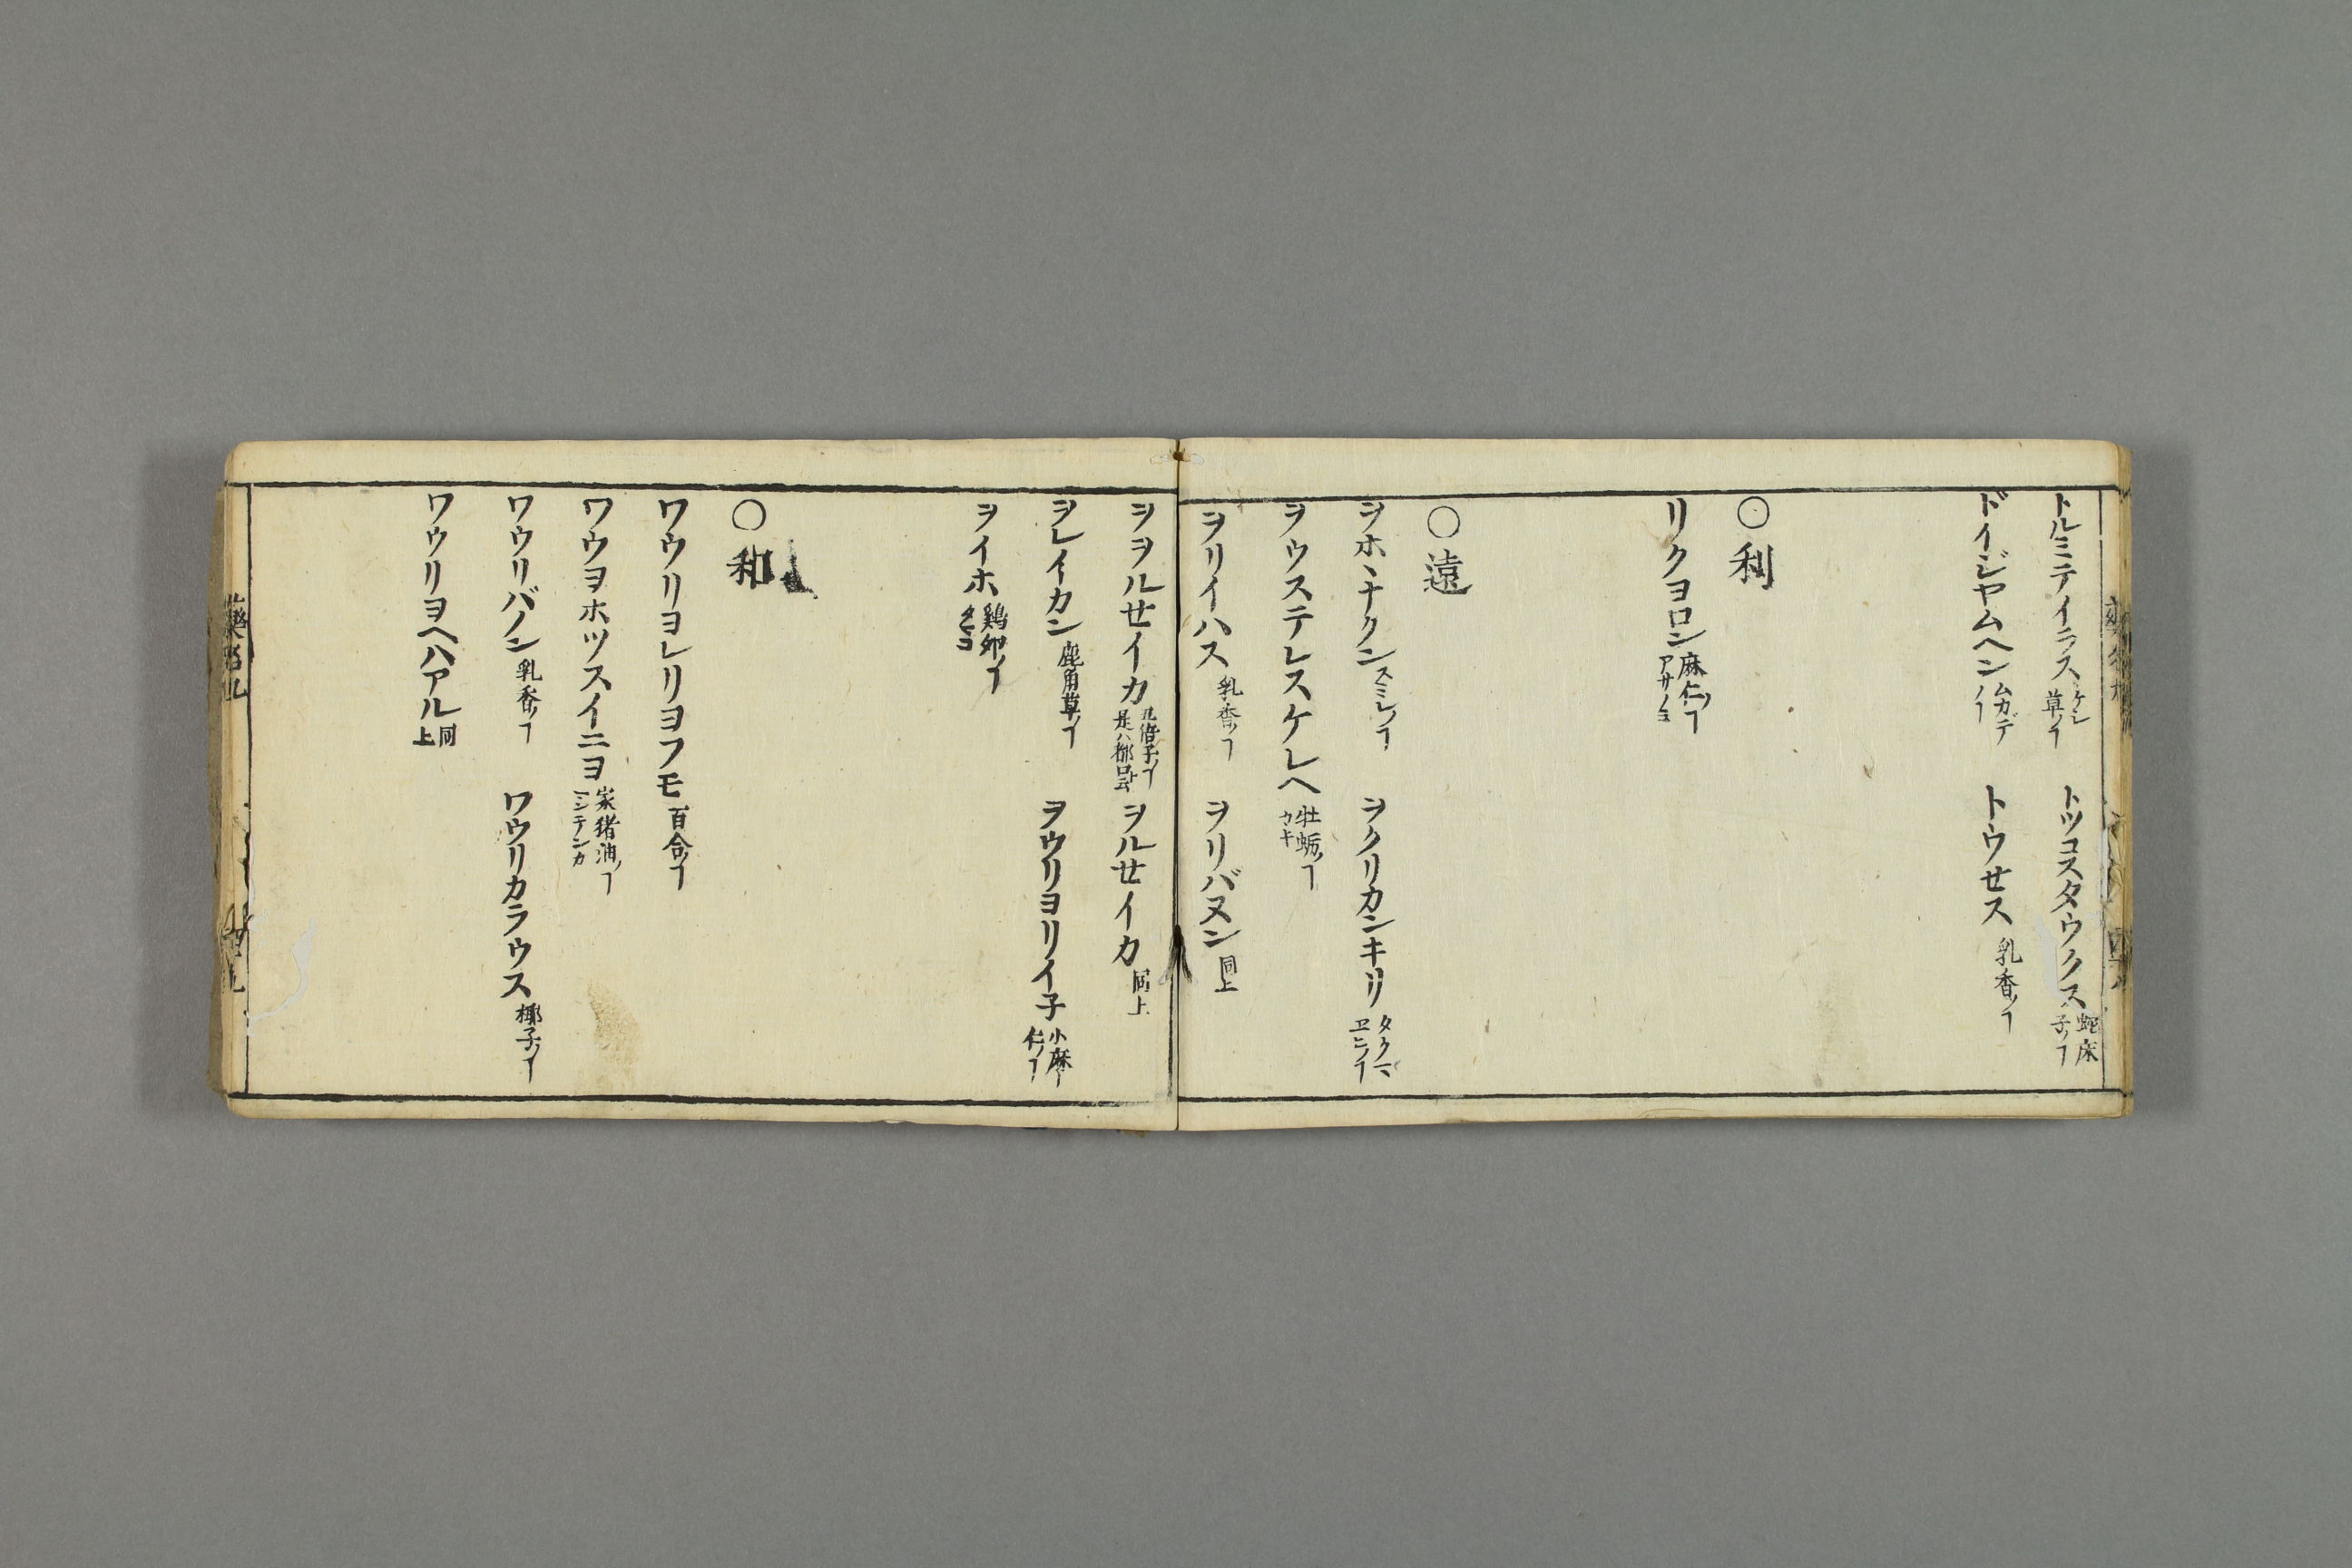 トルミテイニラス ケシ草ノヿ
トツコスタウクス 蛇床子ノヿ
ドイジヤムヘン ムカデノヿ
トウせス 乳香ノヿ
○利
リクヨロン 麻仁ノヿ アサノミ
○遠
ヲホヽナクン スミレノヿ
ヲクリカンキリ
ヲウステレスケレヘ 牡蛎ノヿ カキ
ヲリイハス 乳香ノヿ
ヲリバヌン 同上
ヲヲルせイカ
ヲルせイカ 同上
ヲレイカン 鹿角草ノヿ
ヲウリヨリイ子 小麻仁ノヿ
ヲイホ 鷄卵ノヿ タマコ
○和
ワウリヨレリヨフモ 百合ノヿ
ワウヨホツスイニヨ 家猪油ノヿ
ワウリバノン 乳香ノヿ
ワウリカラウス 椰子ノヿ
ワウリヨヘハアル 同上